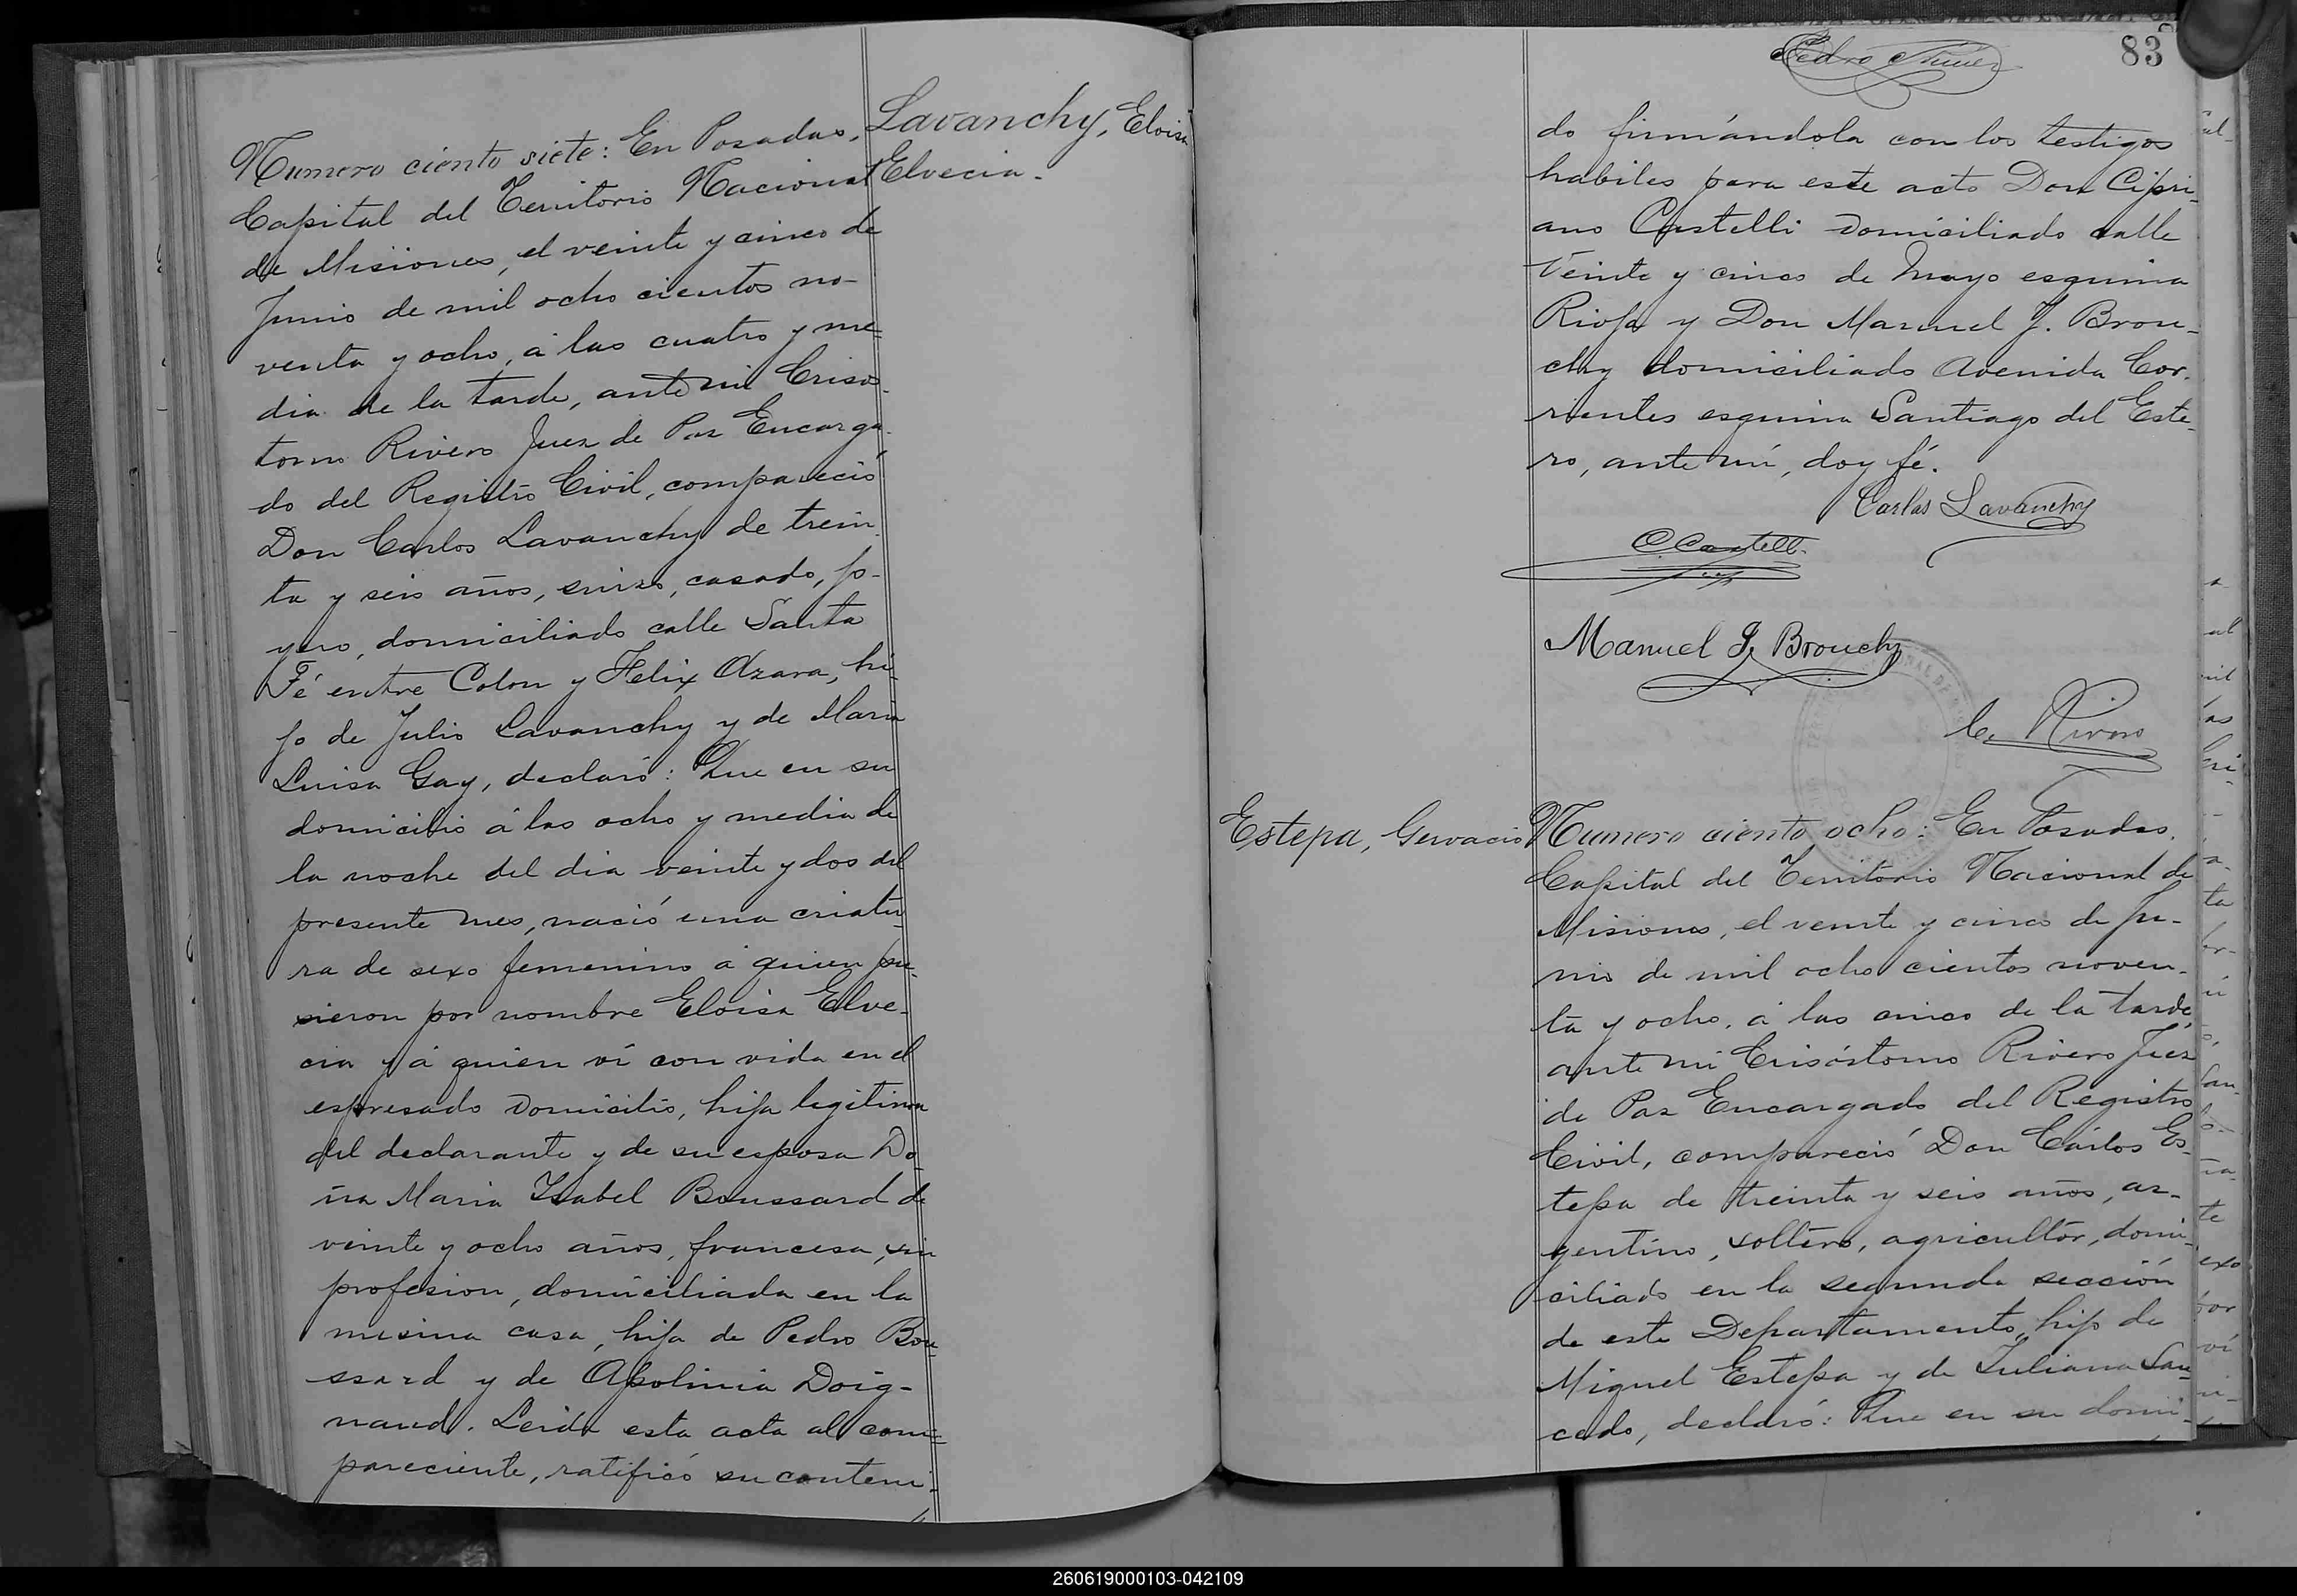 Numero ciento siete: En Posadas,
Capital del Territorio Nacional
de Misiones, el veinte y cinco de
Junio de mil ocho cientos no-
venta y ocho, á las cuatro y me-
dia de la tarde, ante mi Crisós-
tomo Rivero Juez de Paz Encarga-
do del Registro Civil, compareció
Don Carlos Lavanchy de trein-
ta y seis años, suizo, casado, jo-
yero, domiciliado calle Santa
Fé entre Colon y Felix Azara, hi-
jo de Julio Lavanchy y de Maria
Luisa Gay, declaró: Que en su
domicilio á las ocho y media de
la noche del dia veinte y dos del
presente mes, nació una criatu-
ra de sexo femenino á quien pu-
sieron por nombre Eloisa Elve-
cia y á quien ví con vida en el
espresado domicilio, hija legitima
del declarante y de su esposa Do-
ña Maria Isabel Boussard de
veinte y ocho años, francesa, sin
profesion, domiciliada en la
misma casa, hija de Pedro Bou-
ssard y de Apolinia Doig-
naud. Leida esta acta al com-
pareciente, ratificó su conteni-
Lavanchy, Eloisa
Elvecia.
83
Pedro Nuñez
do firmándola con los testigos
habiles para este acto Don Cipri-
ano Castelli domiciliado calle
Veinte y cinco de Mayo esquina
Rioja y Don Manuel J. Brou-
chy domiciliado Avenida Cor-
rientes esquina Santiago del Este-
ro, ante mí, doy fé.
Carlos Lavanchy
C Castelli
Manuel J. Brouchy
C. Rivero
Estepa, Gervacio
Numero ciento ocho: En Posadas,
Capital del Territorio Nacional de
Misiones, el veinte y cinco de Ju-
nio de mil ocho cientos noven-
ta y ocho, á las cinco de la tarde,
ante mi Crisóstomo Rivero Juez
de Paz Encargado del Registro
Civil, compareció Don Cárlos Es-
tepa de treinta y seis años, ar-
gentino, soltero, agricultor, domi-
ciliado en la segunda sección
de este Departamento, hijo de
Miguel Estepa y de Juliana Sau-
cedo, declaró: Que en su domi-
260619000103-042109